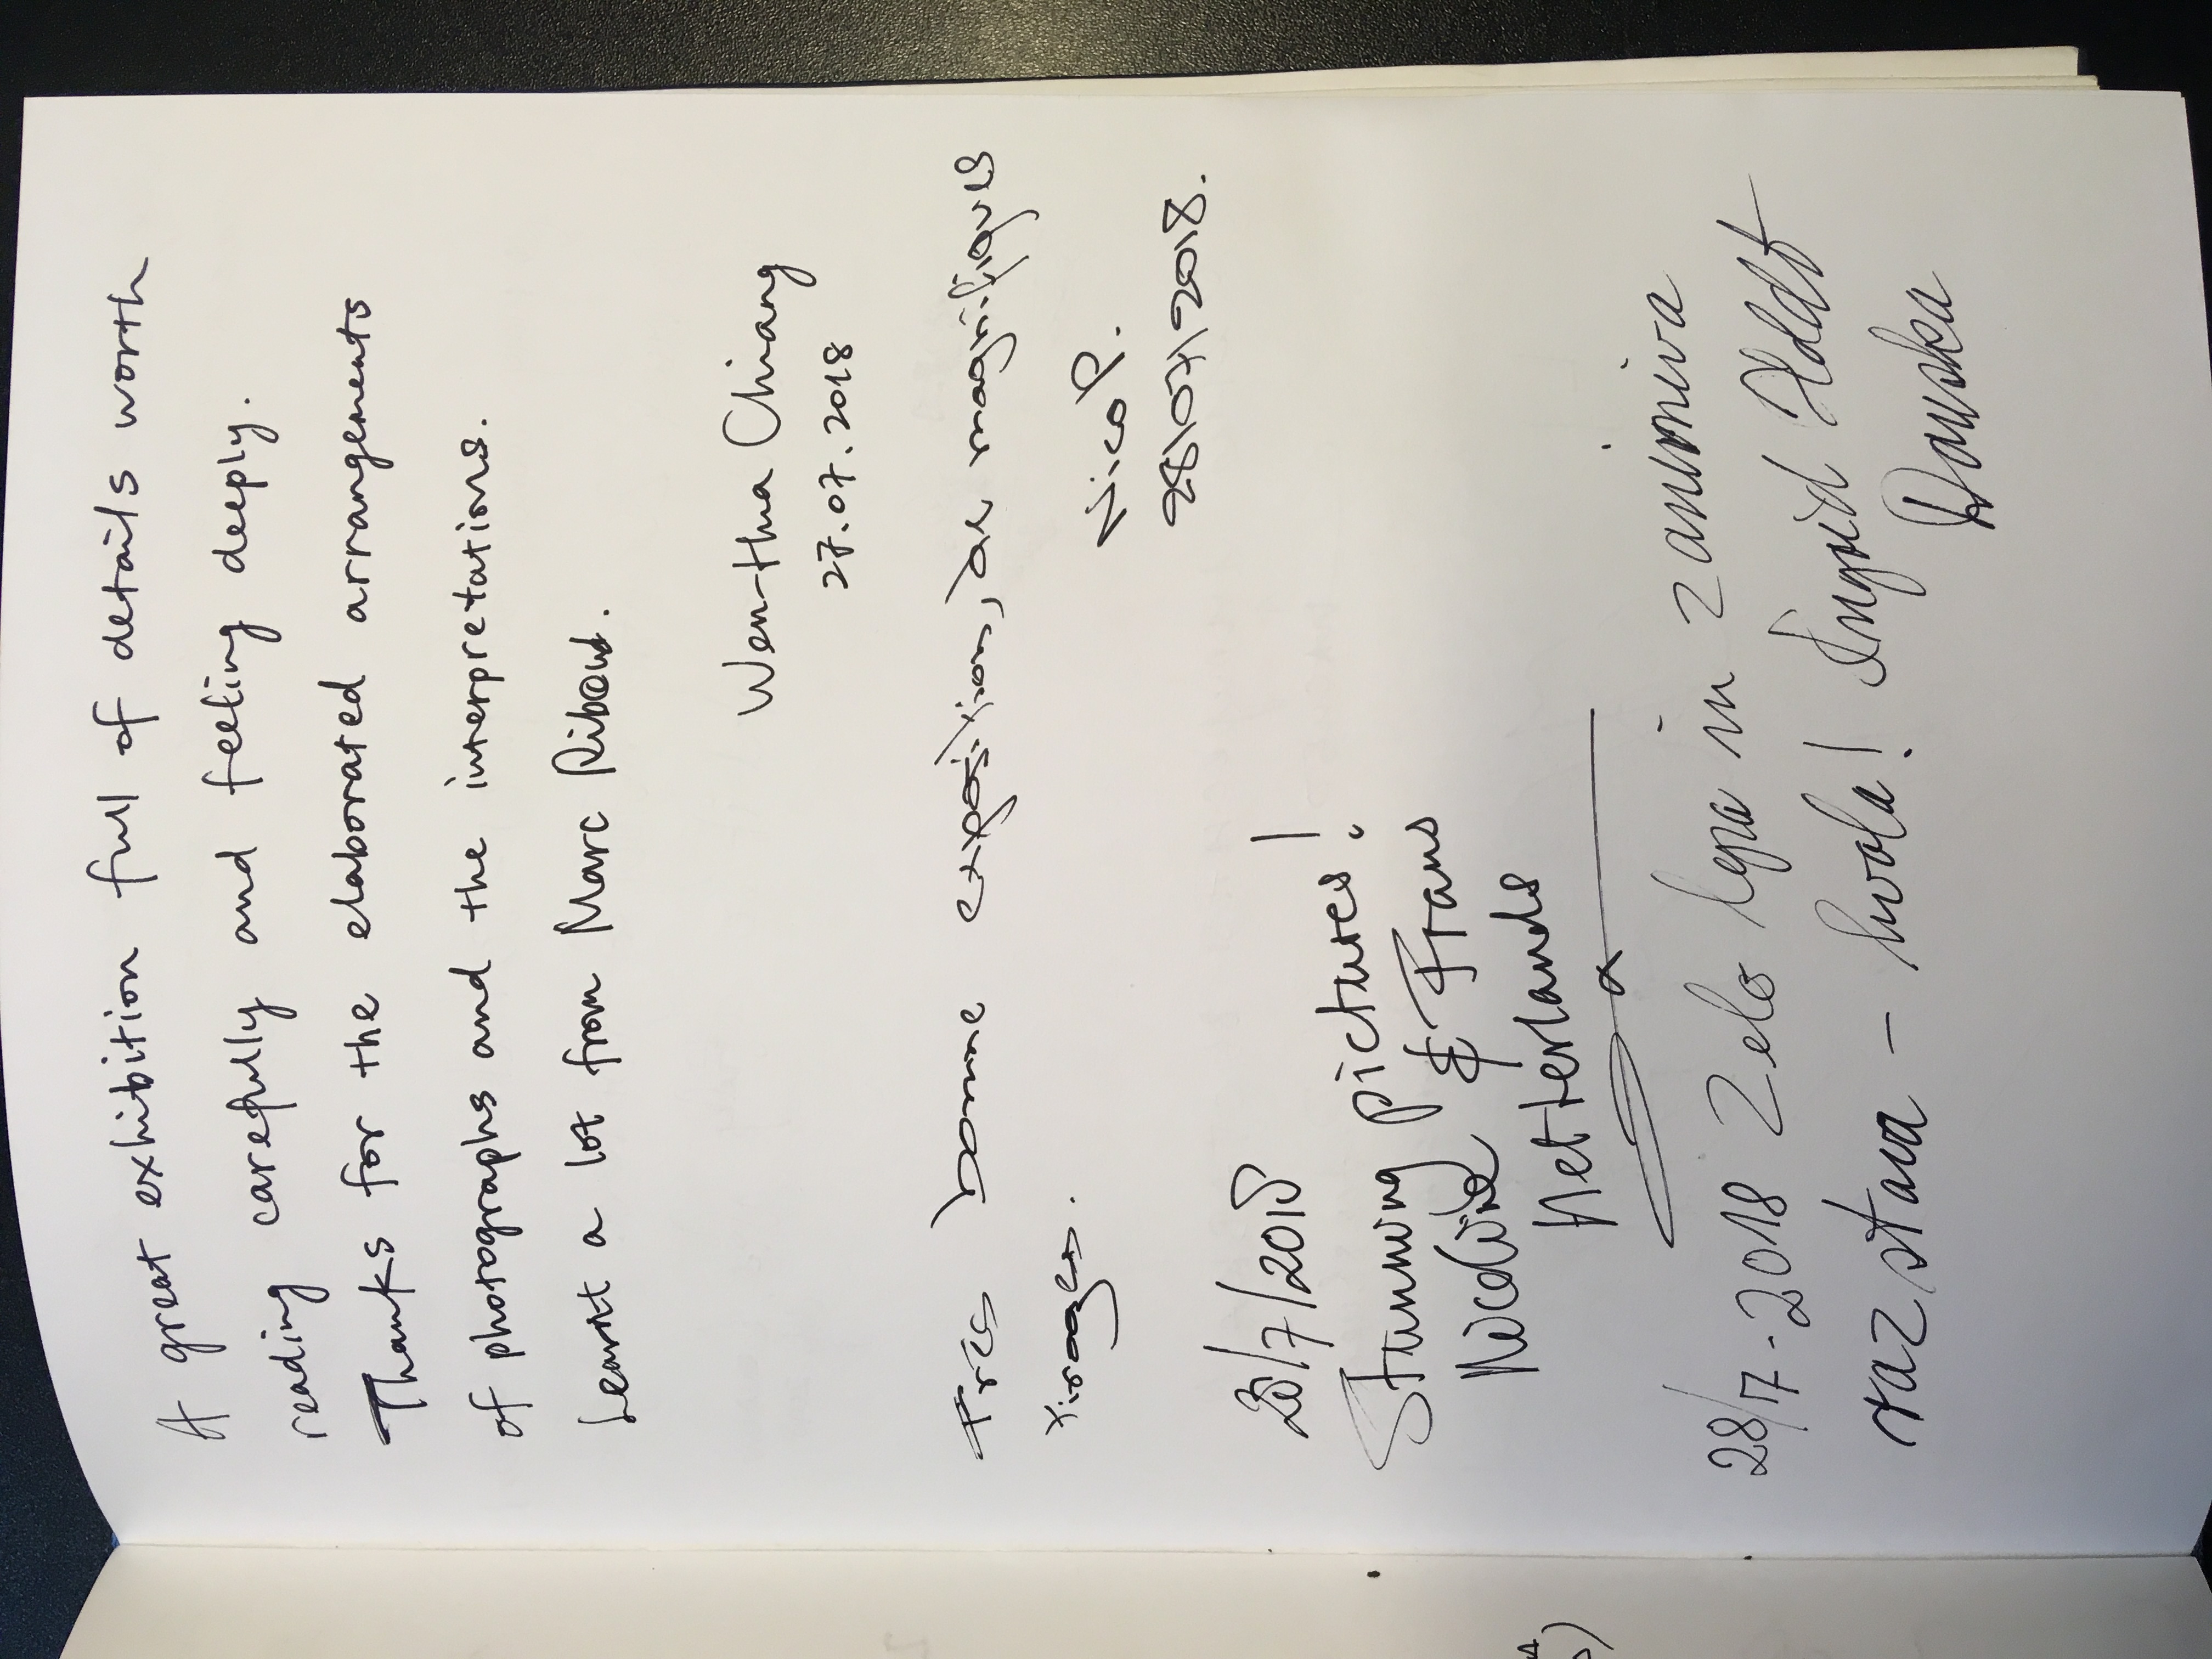 A great exhibition full of details worth
reading carefully and feeling deeply.
Thanks for the elaborated arrangements
of photographs and the interpretations.
Learnt a lot from Marc Riboud.
Wen-Hua Chiang
27.07.2018
Très bonne exposition, de magnifiques
tirages.
Nico P.
28/07/2018.
28/7/2018
Stunning pictures!
& Frans
Netherlands
28/7-2018 Zelo lepa in zanimiva
razstava - hvala! Ingrid
Danska